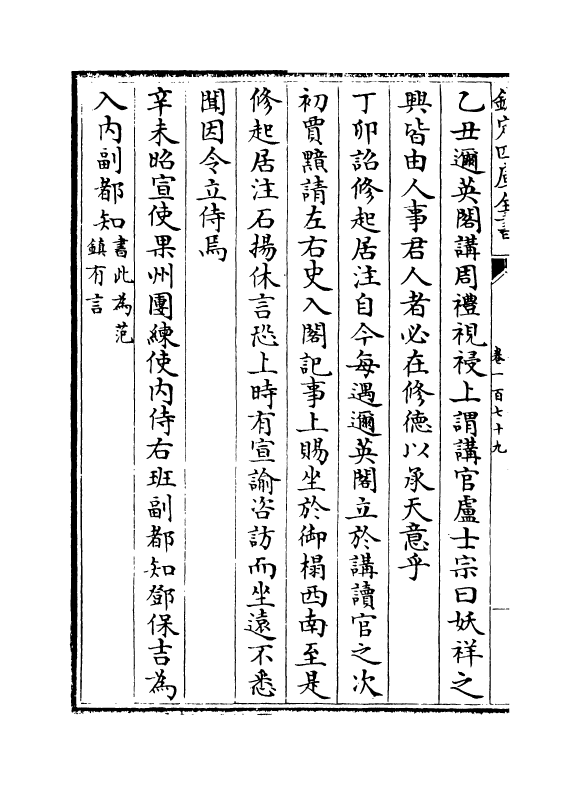 欽定四庫全書
卷一百七十九
乙丑邇英閣講周禮視祲上謂講官盧士宗曰妖祥之
興皆由人事君人者必在修德以承天意乎
丁卯詔修起居注自今每遇邇英閣立於講讀官之次
初賈黯請左右史入閣記事上賜坐於御榻西南至是
修起居注石揚休言恐上時有宣諭咨訪而坐遠不悉
聞因令立侍焉
辛未昭宣使果州團練使內侍右班副都知鄧保吉為
入內副都知書此為范
鎮有言